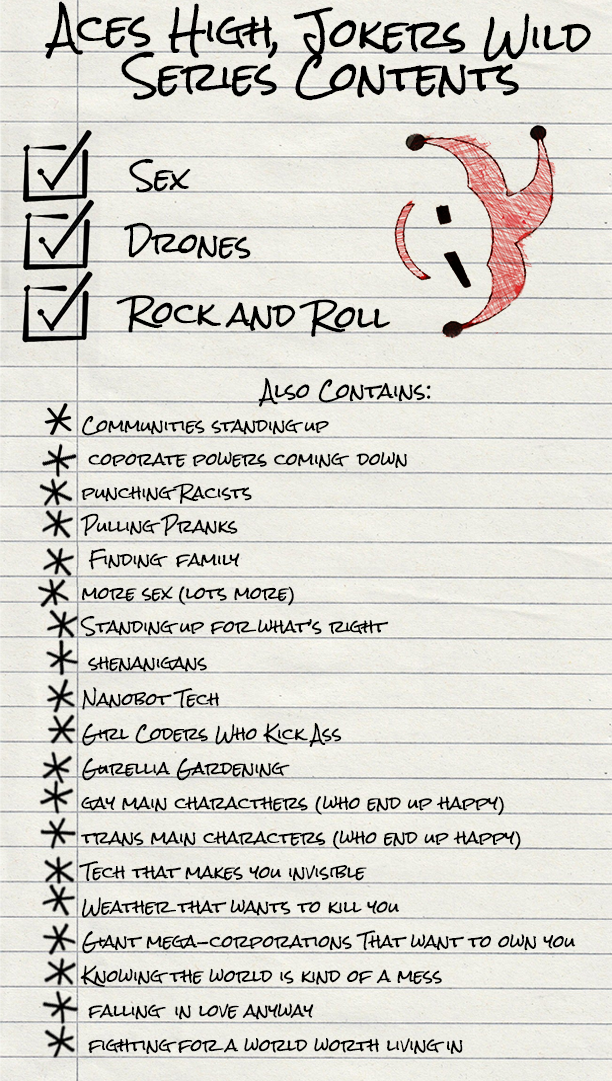 Aces High, Jokers Wild
Series Contents
Sex
Drones
Rock and Roll
Also Contains:
Communities standing up
coporate powers coming down
punching Racists
Pulling Pranks
Finding family
more sex (lots more)
Standing up for what's right
shenanigans
Nanobot Tech
Girl Coders Who Kick Ass
Gurellia Gardening
gay main characthers (who end up happy)
trans main characters (who end up happy)
Tech that makes you invisible
Weather that wants to kill you
Giant mega-corporations That want to own you
Knowing the world is kind of a mess
falling in love anyway
fighting for a world worth living in